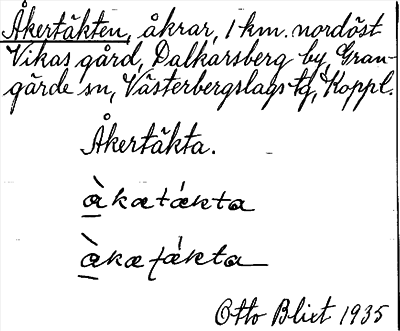 Åkertäkten, åkrar, 1 km. nordöst
Vikas gård, Dalkarsberg by, Gran-
gärde sn, Västerbergslags tg, Koppl.
Åkertäkta.
àkætákta
àkætákta
Otto Blixt 1935